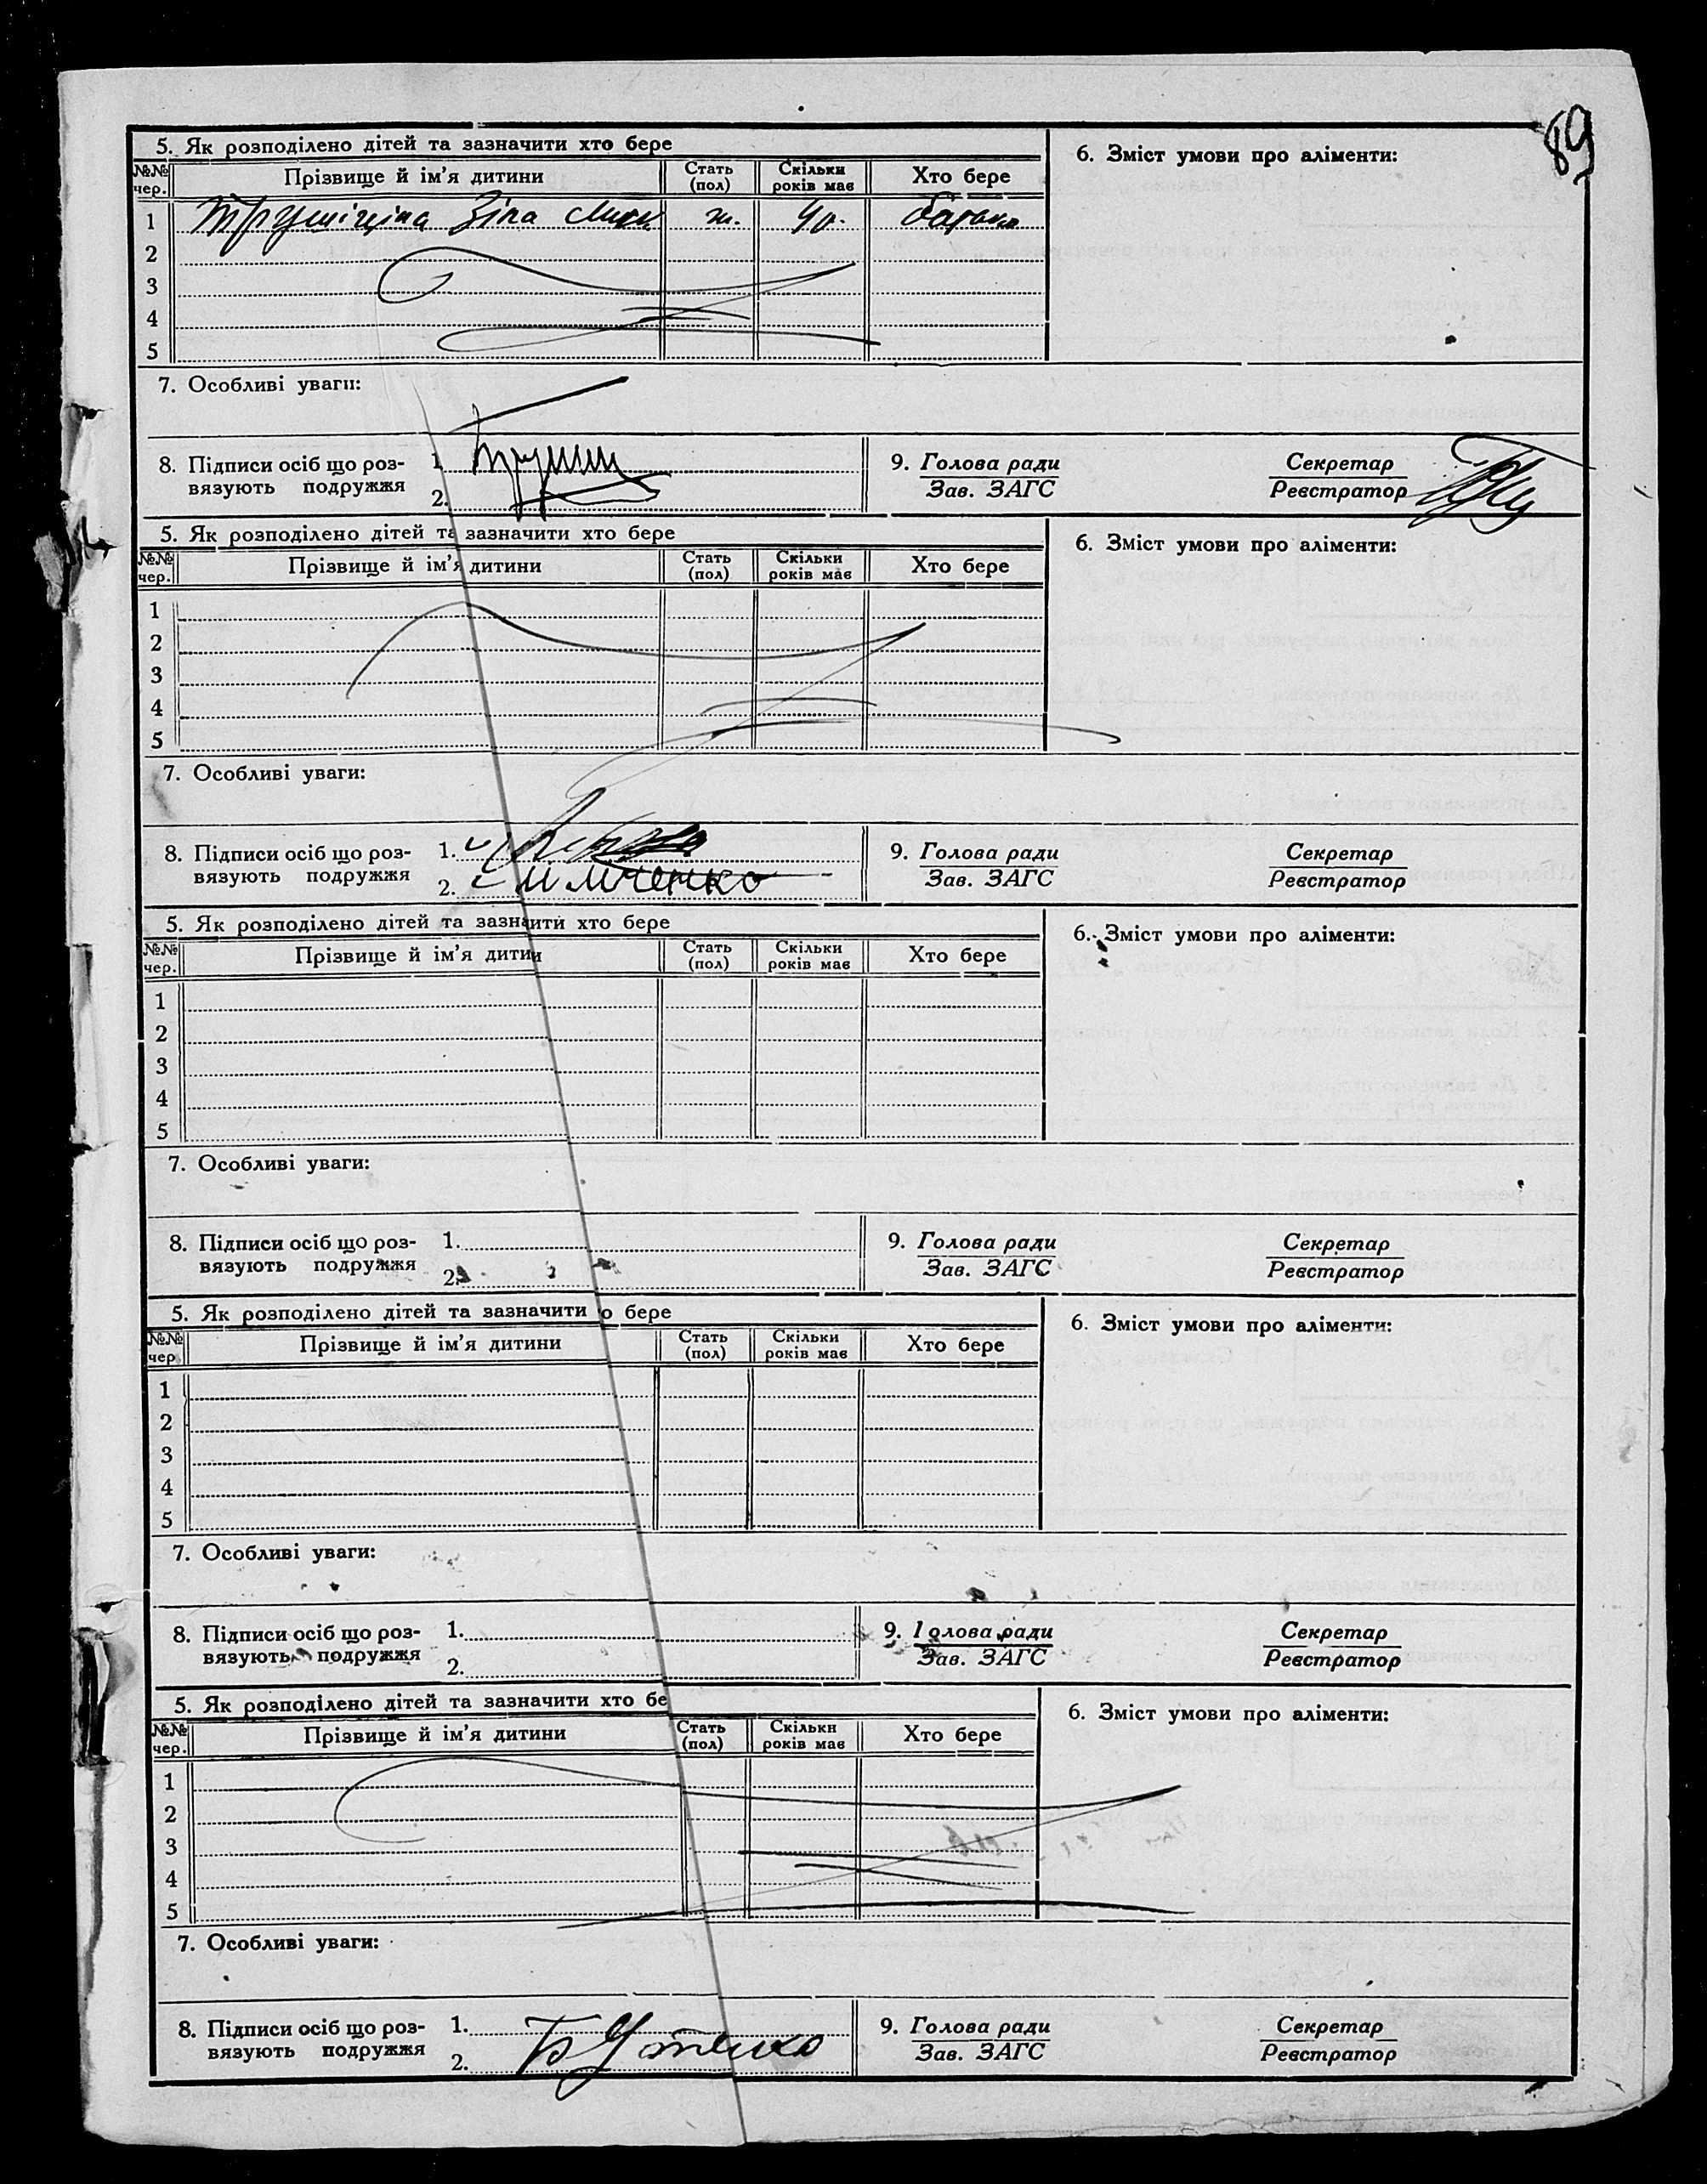 89
5. Як розподілено дітей та зазначити хто бере
6. Зміст умови про аліменти:
№№ чер. Прізвище й ім'я дитини Стать (пол) Скільки років має Хто бере
1 ж. батько
2
3
4
5
7. Особливі уваги:
8. Підписи осіб що роз- 1.
вязують подружжя 2.
9. Голова ради Секретар
Зав. ЗАГС Реєстратор
5. Як розподілено дітей та зазначити хто бере
6. Зміст умови про аліменти:
№№ чер. Прізвище й ім'я дитини Стать (пол) Скільки років має Хто бере
1
2
3
4
5
7. Особливі уваги:
8. Підписи осіб що роз- 1.
вязують подружжя 2.
9. Голова ради Секретар
Зав. ЗАГС Реєстратор
5. Як розподілено дітей та зазначити хто бере
6. Зміст умови про аліменти:
№№ чер. Прізвище й ім'я дитини Стать (пол) Скільки років має Хто бере
1
2
3
4
5
7. Особливі уваги:
8. Підписи осіб що роз- 1.
вязують подружжя 2.
9. Голова ради Секретар
Зав. ЗАГС Реєстратор
5. Як розподілено дітей та зазначити о бере
6. Зміст умови про аліменти:
№№ чер. Прізвище й ім'я дитини Стать (пол) Скільки років має Хто бере
1
2
3
4
5
7. Особливі уваги:
8. Підписи осіб що роз- 1.
вязують подружжя 2.
9. Голова ради Секретар
Зав. ЗАГС Реєстратор
5. Як розподілено дітей та зазначити хто бе
6. Зміст умови про аліменти:
№№ чер. Прізвище й ім'я дитини Стать (пол) Скільки років має Хто бере
1
2
3
4
5
7. Особливі уваги:
8. Підписи осіб що роз- 1.
вязують подружжя 2.
9. Голова ради Секретар
Зав. ЗАГС Реєстратор